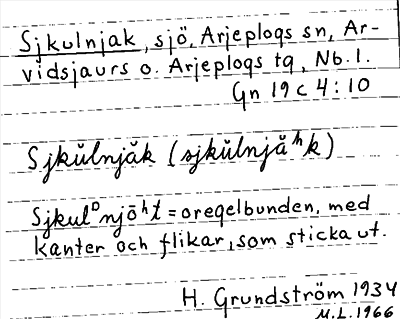 Sjkulnjak, sjö, Arjeplogs sn, Ar-
vidsjaurs o. Arjeplogs tg, Nb. l.
Gn 19 c 4:10
Sjkŭlnjăk (sjkŭlnjăʰk)
Sjkulᴰnjōʰt = oregelbunden, med
kanter och flikar, som sticka ut.
H. Grundström 1934
M.L. 1966